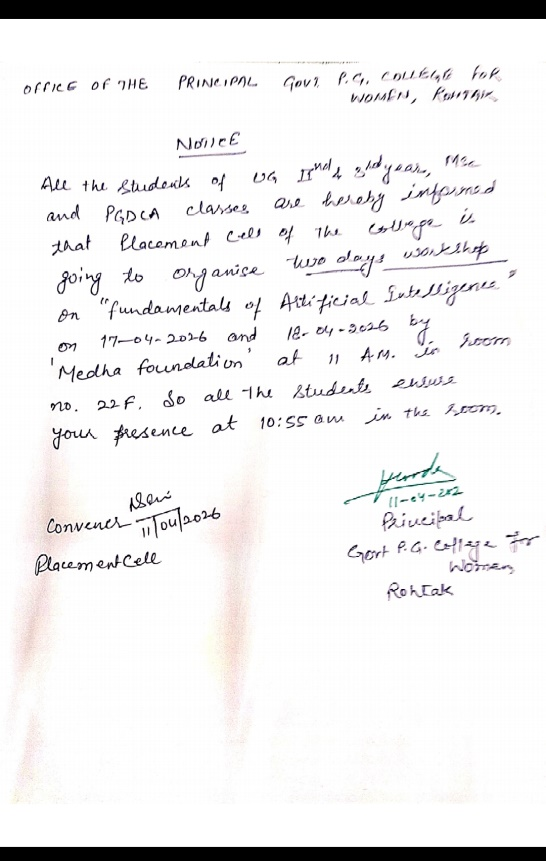 OFFICE OF THE PRINCIPAL GOVT P.G. COLLEGE FOR
WOMEN, ROHTAK
NOTICE
All the Students of UG IInd & 3rd year, MSc
and PGDCA classes are hereby informed
that Placement Cell of the college is
going to organise two days workshop
on "fundamentals of Artificial Intelligence"
on 17-04-2026 and 18-04-2026 by
'Medha foundation' at 11 AM. in room
no. 22F. So all the students ensure
your presence at 10:55 am in the room.
11-04-202
Principal
Govt P.G. College For
Women,
Rohtak
Convener
11/04/2026
Placement Cell